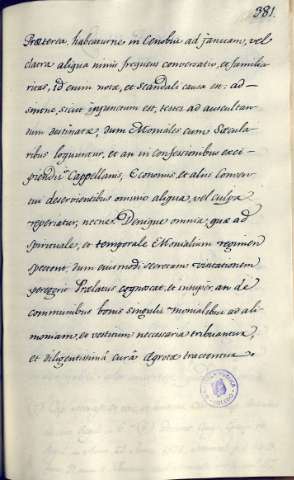 381.
Præterea, habeaturne in Cenobii ad januam, vel
clatra aliqua nimis frequens conversatio, et familia
ritas, id cum notæ, et scandali causa est: ad-
sintne, sicut injunctum est, testes ad auscultan-
dum destinatæ, dum Moniales cum Sæcula-
ribus loquuntur, et an in confessionibus exci-
piendis Cappellanis, Economis, et aliis
deservientibus omnino aliqua, vel culpa
reperiatur, necne. Denique omnia quæ ad
spirituale, et temporale Monialium regimen
spectant, dum ejusmodi secretam visitationem
peregerit Prælatus cognoscat, et insuper, an de
communibus bonis singulis Monialibus ad ali-
moniam, et vestitum necessaria tribuantur,
et diligentissimâ curâ Ægrotæ tractentur.